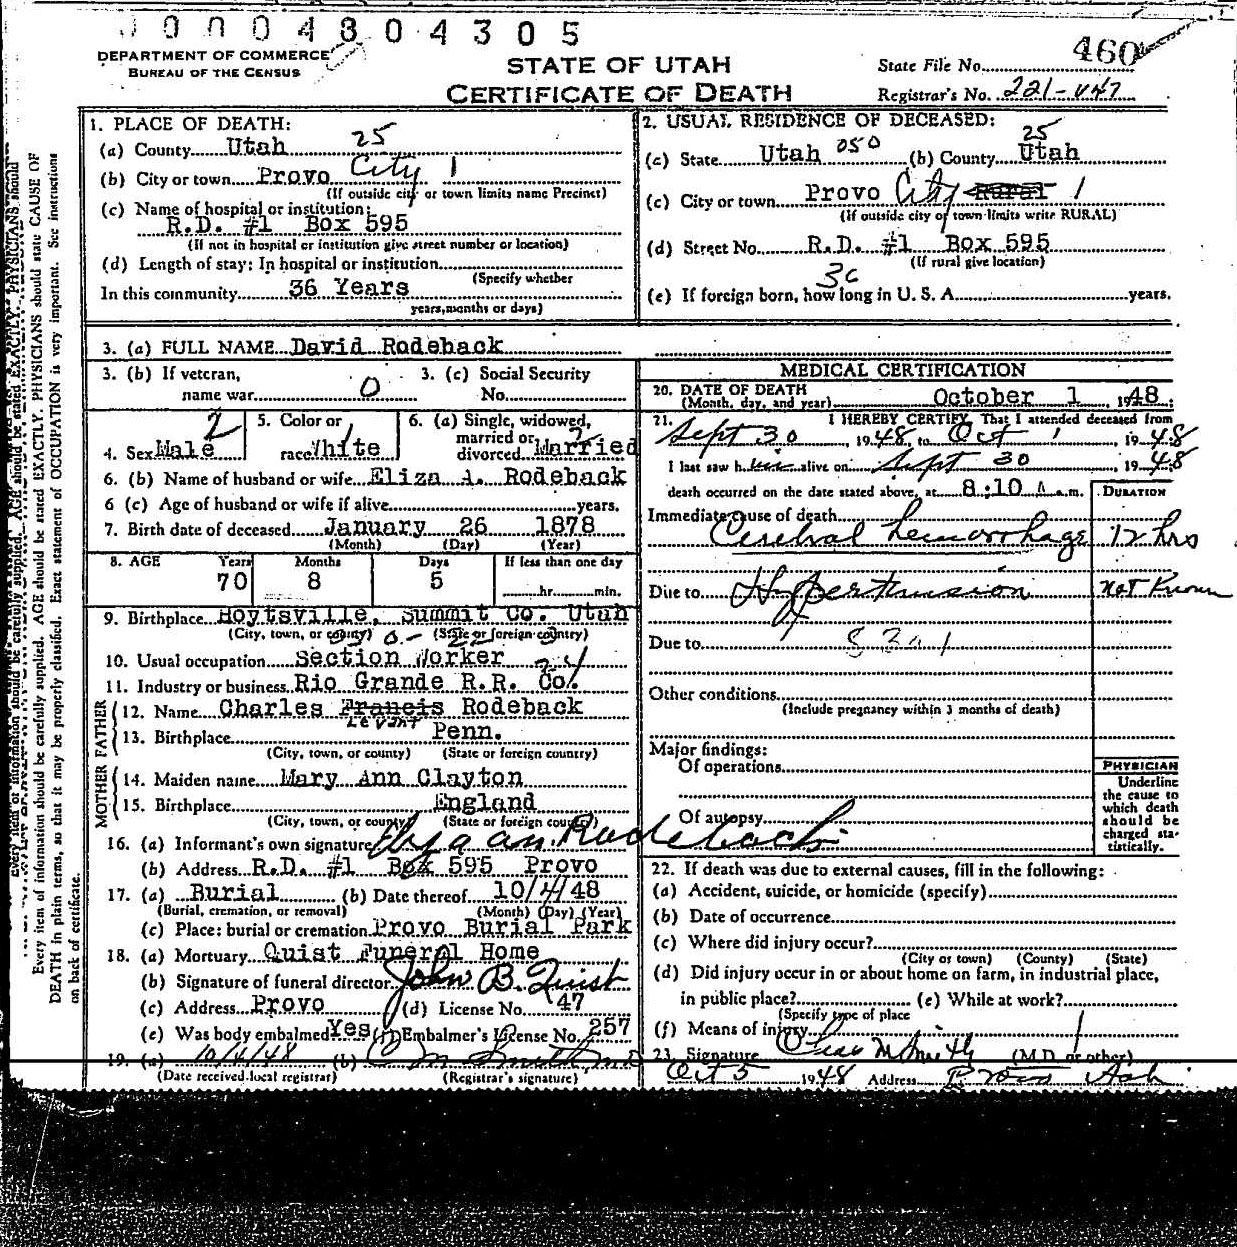 00004804305
DEPARTMENT OF COMMERCE
BUREAU OF THE CENSUS
STATE OF UTAH
CERTIFICATE OF DEATH
State File No. 460
Registrar's No. 221-447
Every item of information should be carefully supplied. AGE should be stated EXACTLY. PHYSICIANS should state CAUSE OF
DEATH in plain terms, so that it may be properly classified. Exact statement of OCCUPATION is very important. See instructions
on back of certificate.
1. PLACE OF DEATH:
25
(a) County Utah
(b) City or town Provo City 1
(If outside city or town limits name Precinct)
(c) Name of hospital or institution:
R.D. #1 Box 595
(If not in hospital or institution give street number or location)
(d) Length of stay: In hospital or institution
(Specify whether
In this community 36 Years
years, months or days)
2. USUAL RESIDENCE OF DECEASED:
25
(a) State Utah 050 (b) County Utah
(c) City or town Provo City Rural 1
(If outside city of town limits write RURAL)
(d) Street No. R.D. #1 Box 595
(If rural give location)
(e) If foreign born, how long in U. S. A. years.
3. (a) FULL NAME David Rodeback
3. (b) If veteran,
name war 0
3. (c) Social Security
No.
4. Sex Male 2
5. Color or
race White 1
6. (a) Single, widowed,
married or
divorced Married 2
6. (b) Name of husband or wife Eliza A. Rodeback
6 (c) Age of husband or wife if alive years.
7. Birth date of deceased January 26 1878
(Month) (Day) (Year)
8. AGE Years Months Days If less than one day
70 8 5 hr. min.
9. Birthplace Hoytsville, Summit Co. Utah
(City, town, or county) (State or foreign country)
10. Usual occupation Section Worker
11. Industry or business Rio Grande R.R. Co.
FATHER
12. Name Charles Francis Rodeback
Levant
13. Birthplace Penn.
(City, town, or county) (State or foreign country)
MOTHER
14. Maiden name Mary Ann Clayton
15. Birthplace England
(City, town, or county) (State or foreign country)
16. (a) Informant's own signature Rodeback
(b) Address R.D. #1 Box 595 Provo
17. (a) Burial (b) Date thereof 10/4/48
(Burial, cremation, or removal) (Month) (Day) (Year)
(c) Place: burial or cremation Provo Burial Park
18. (a) Mortuary Quist Funeral Home
(b) Signature of funeral director John B. Quist
(c) Address Provo (d) License No. 47
(e) Was body embalmed Yes (f) Embalmer's License No. 257
19. (a) 10/6/48 (b) C M Smith M D
(Date received local registrar) (Registrar's signature)
MEDICAL CERTIFICATION
20. DATE OF DEATH
(Month, day, and year) October 1, 1948
21. I HEREBY CERTIFY, That I attended deceased from
Sept 30, 1948, to Oct 1, 1948
I last saw him alive on Sept 30, 1948
death occurred on the date stated above, at 8:10 A a.m.
DURATION
Immediate cause of death
Cerebral hemorrhage 12 hrs
Due to Hypertension not Known
Due to
Other conditions
(Include pregnancy within 3 months of death)
Major findings:
Of operations
Of autopsy
PHYSICIAN
Underline
the cause to
which death
should be
charged sta-
tistically.
22. If death was due to external causes, fill in the following:
(a) Accident, suicide, or homicide (specify)
(b) Date of occurrence
(c) Where did injury occur?
(City or town) (County) (State)
(d) Did injury occur in or about home on farm, in industrial place,
in public place? (e) While at work?
(Specify type of place
(f) Means of injury 1
23. Signature M Smith (M.D. or other)
Oct 5 1948 Address Provo